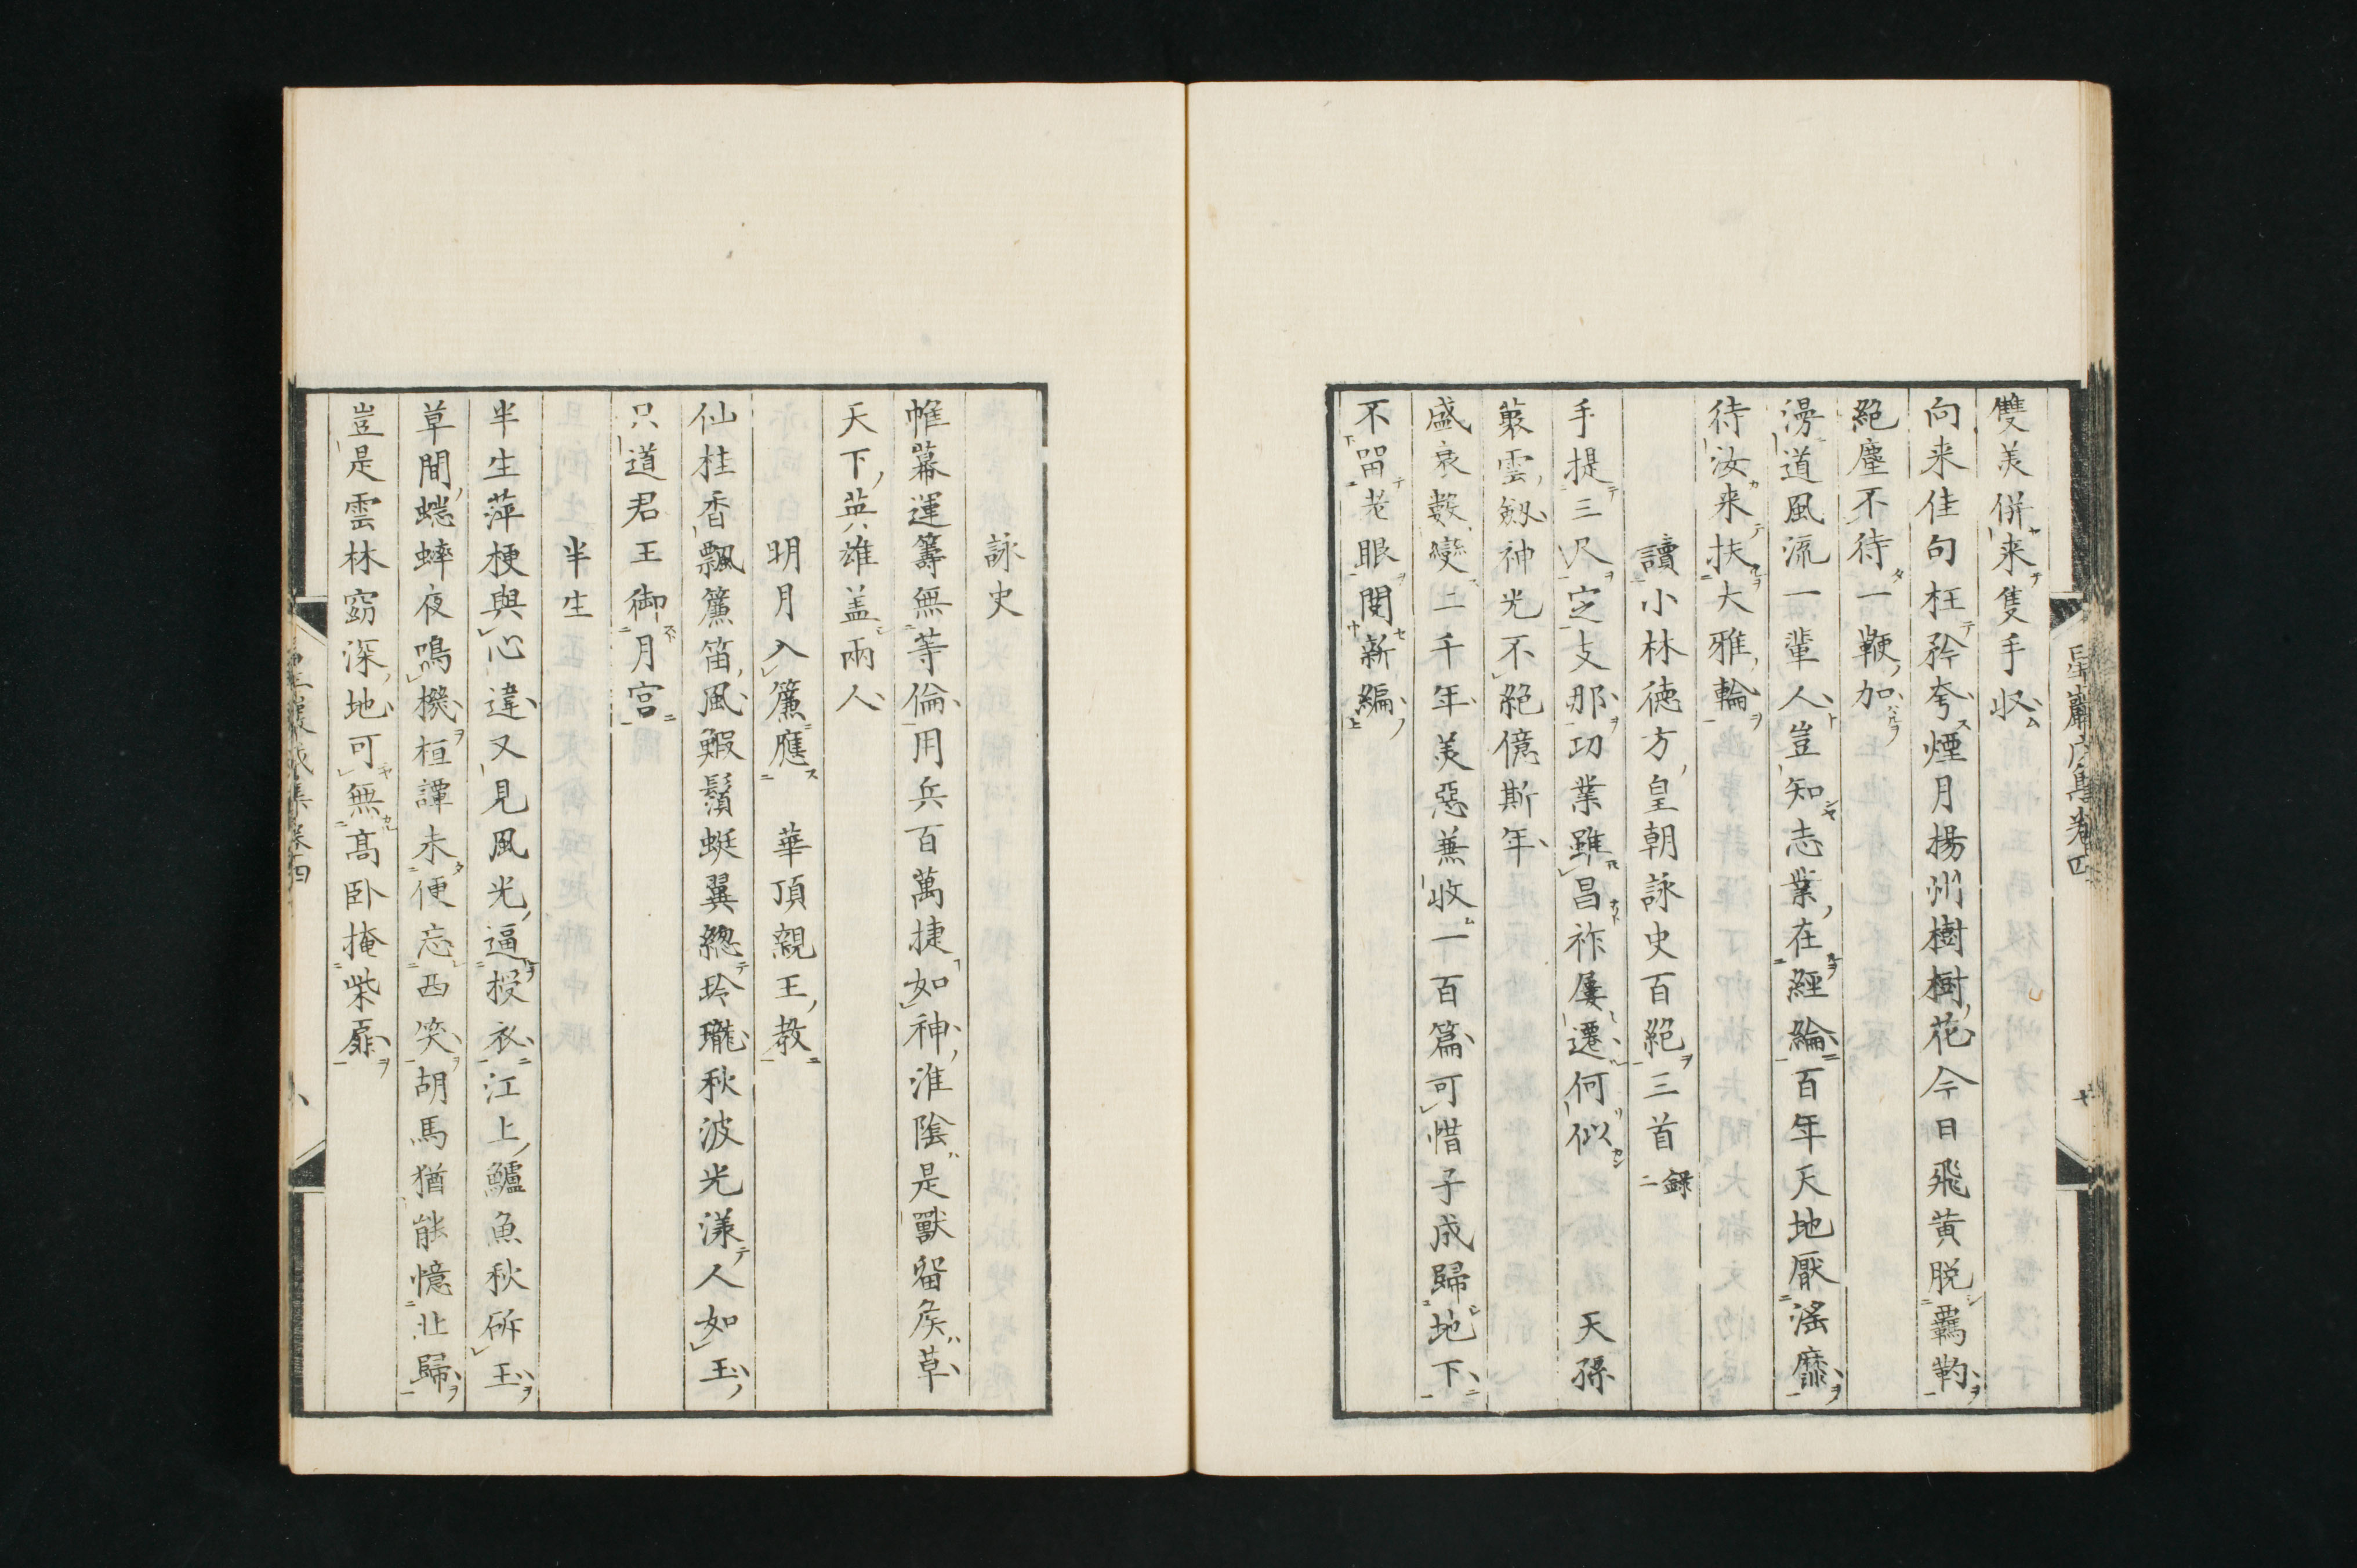 雙美併来隻手収
向来佳句枉矜夸煙月揚州樹樹花今日飛黄脱羈靮
絕塵不待一鞭加
漫道風流一輩人豈知志業在經綸百年天地厭滛靡
待汝来扶大雅輪
讀小林徳方皇朝詠史百絕三首録二
手提三尺定支那功業雖昌祚屢遷何似天孫
叢雲劔神光不絕億斯年
盛衰數變二千年美惡兼收一百篇可惜子成歸地下
不留老眼閱新編
詠史
帷幕運籌無等倫用兵百萬捷如神淮陰是獸留矦草
天下英雄盖兩人
明月入簾應華頂親王教
仙桂香飄簾笛風鰕鬚蜓翼總玲瓏秋波光漾人如玉
只道君王御月宮
半生
半生萍梗與心違又見風光逼授衣江上鱸魚秋斫玉
草間蟋蟀夜鳴機桓譚未便忘西笑胡馬猶能憶北歸
豈是雲林窈深地可無髙卧掩柴扉